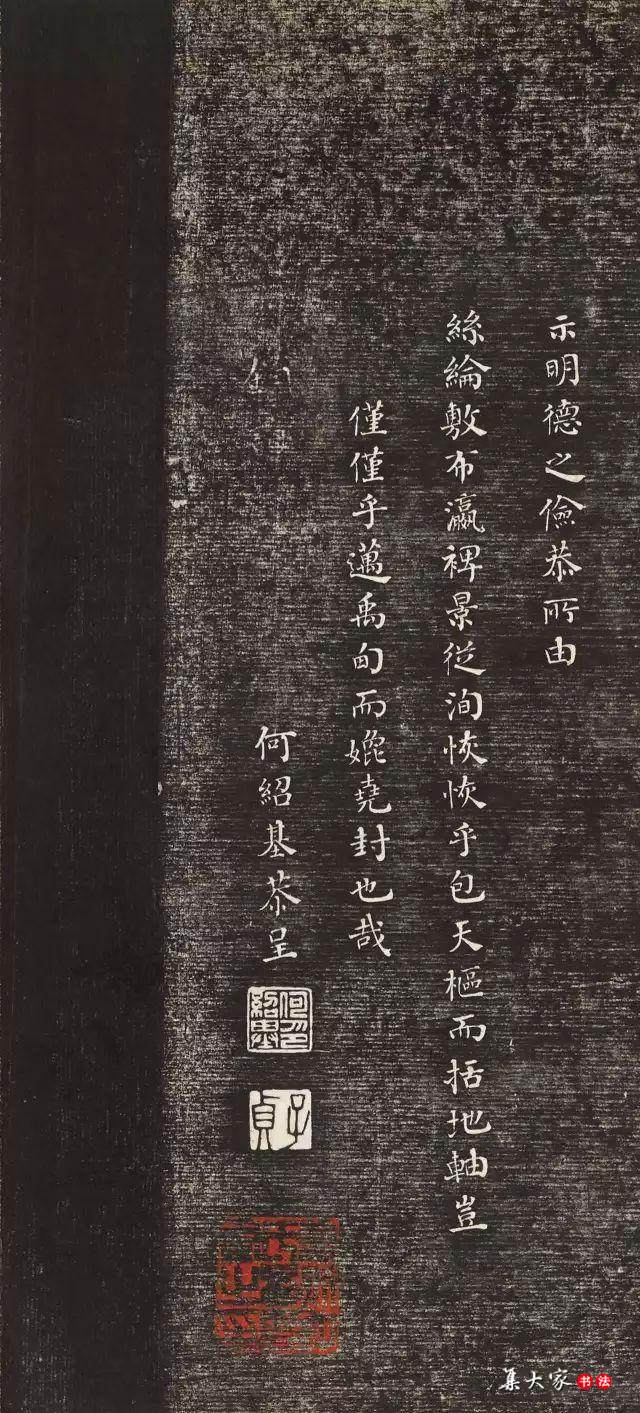 示明德之儉恭所由
絲綸敷布瀛裨景從洵恢恢乎包天樞而括地軸豈
僅僅乎邁禹甸而媲堯封也哉
何紹基恭呈
何紹基印
子貞
集大家书法